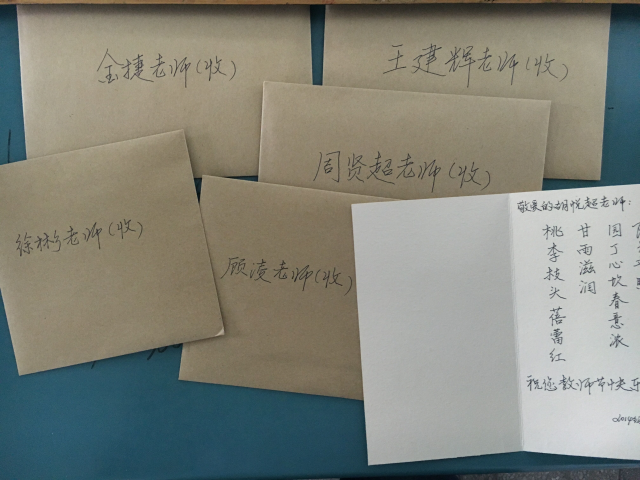 金捷老师(收)
王建辉老师(收)
周贤超老师(收)
徐彬老师(收)
顾凌老师(收)
敬爱的胡悦超老师:
桃李枝头蓓蕾红
甘雨滋润
园丁心坎春意浓
祝您教师节快乐